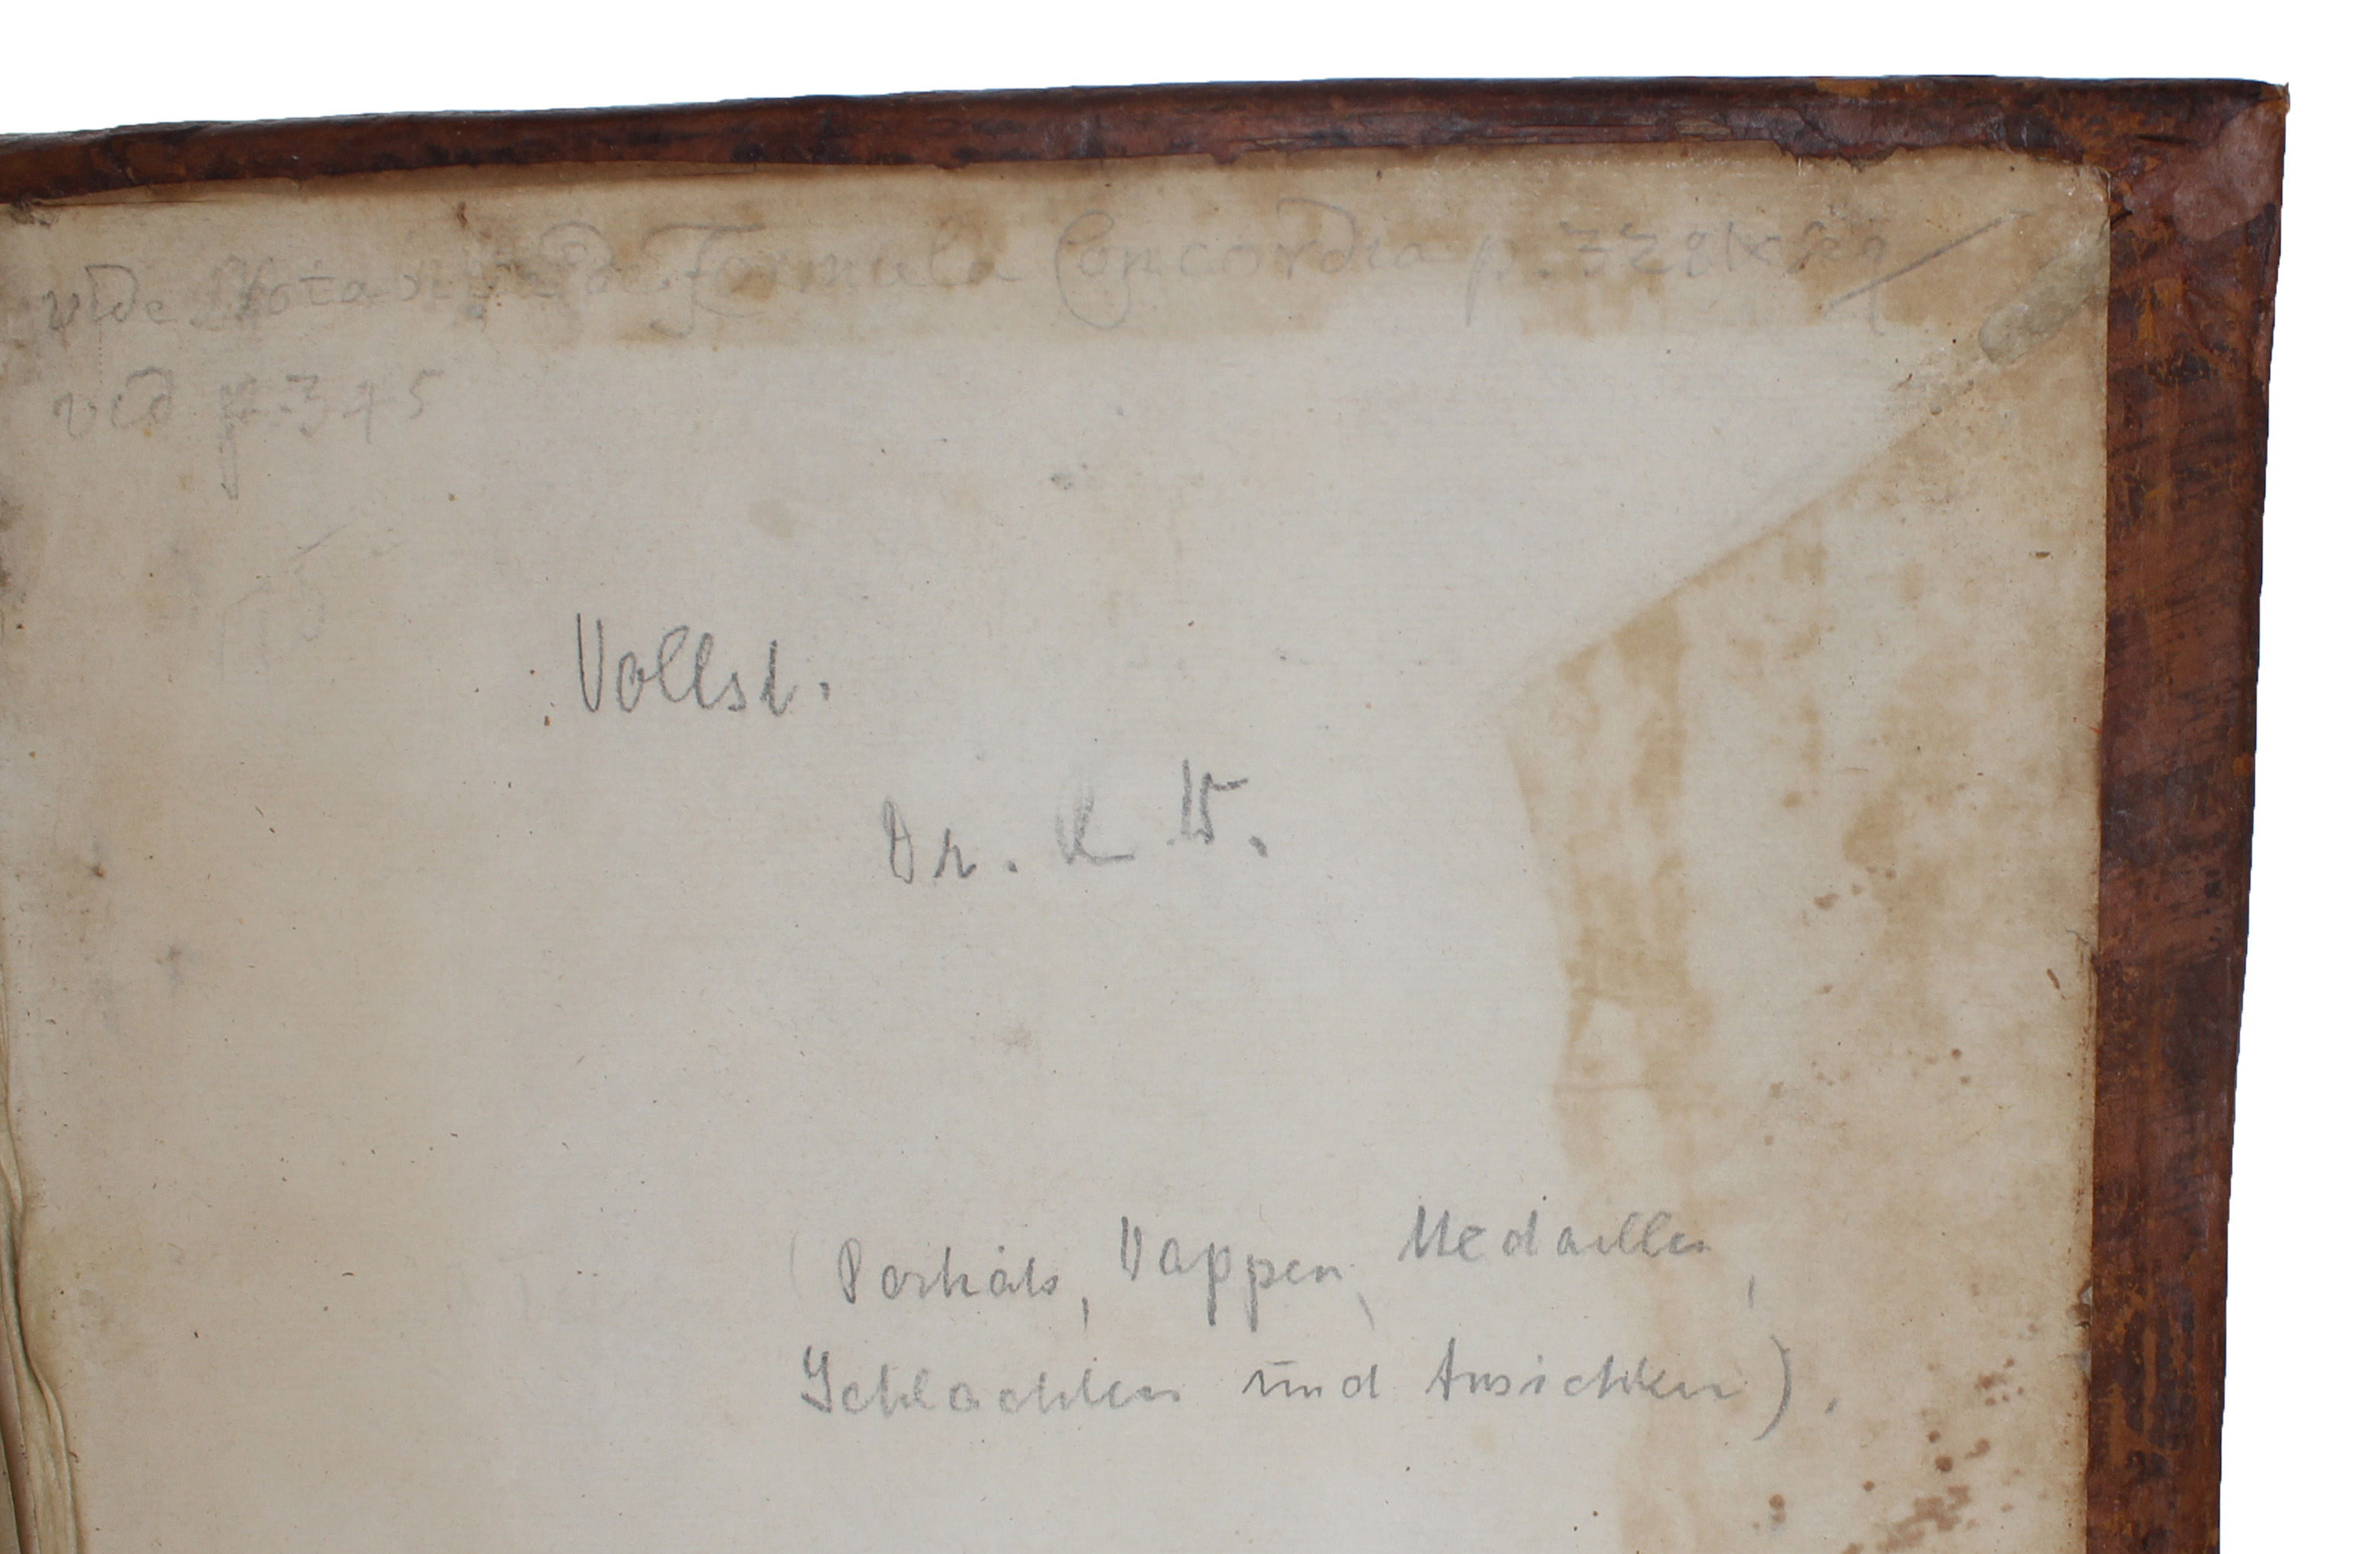 vide Nota Formula Concordia p. 329
vid p. 345
Vollst.
Dr. K W.
(Porträts, Wappen, Medaillen,
Schlachten und Ansichten).